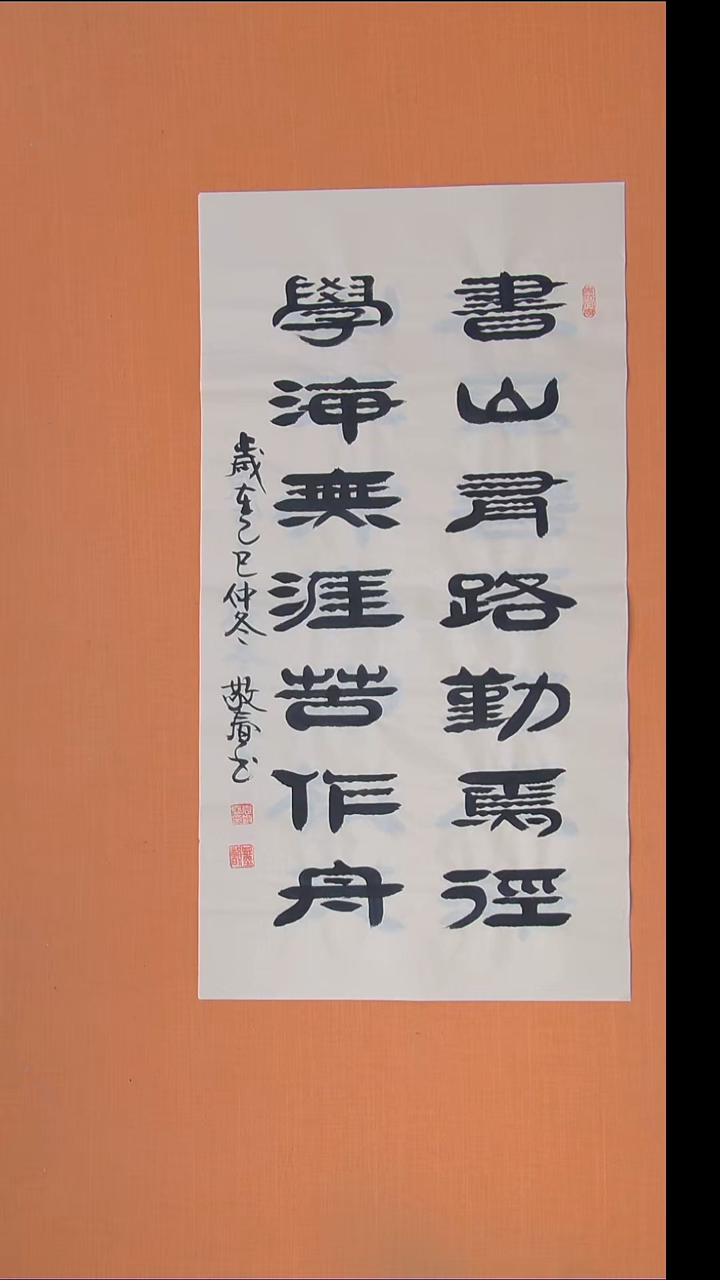 書山有路勤為徑
學海無涯苦作舟
歲在乙巳仲冬
敬 书